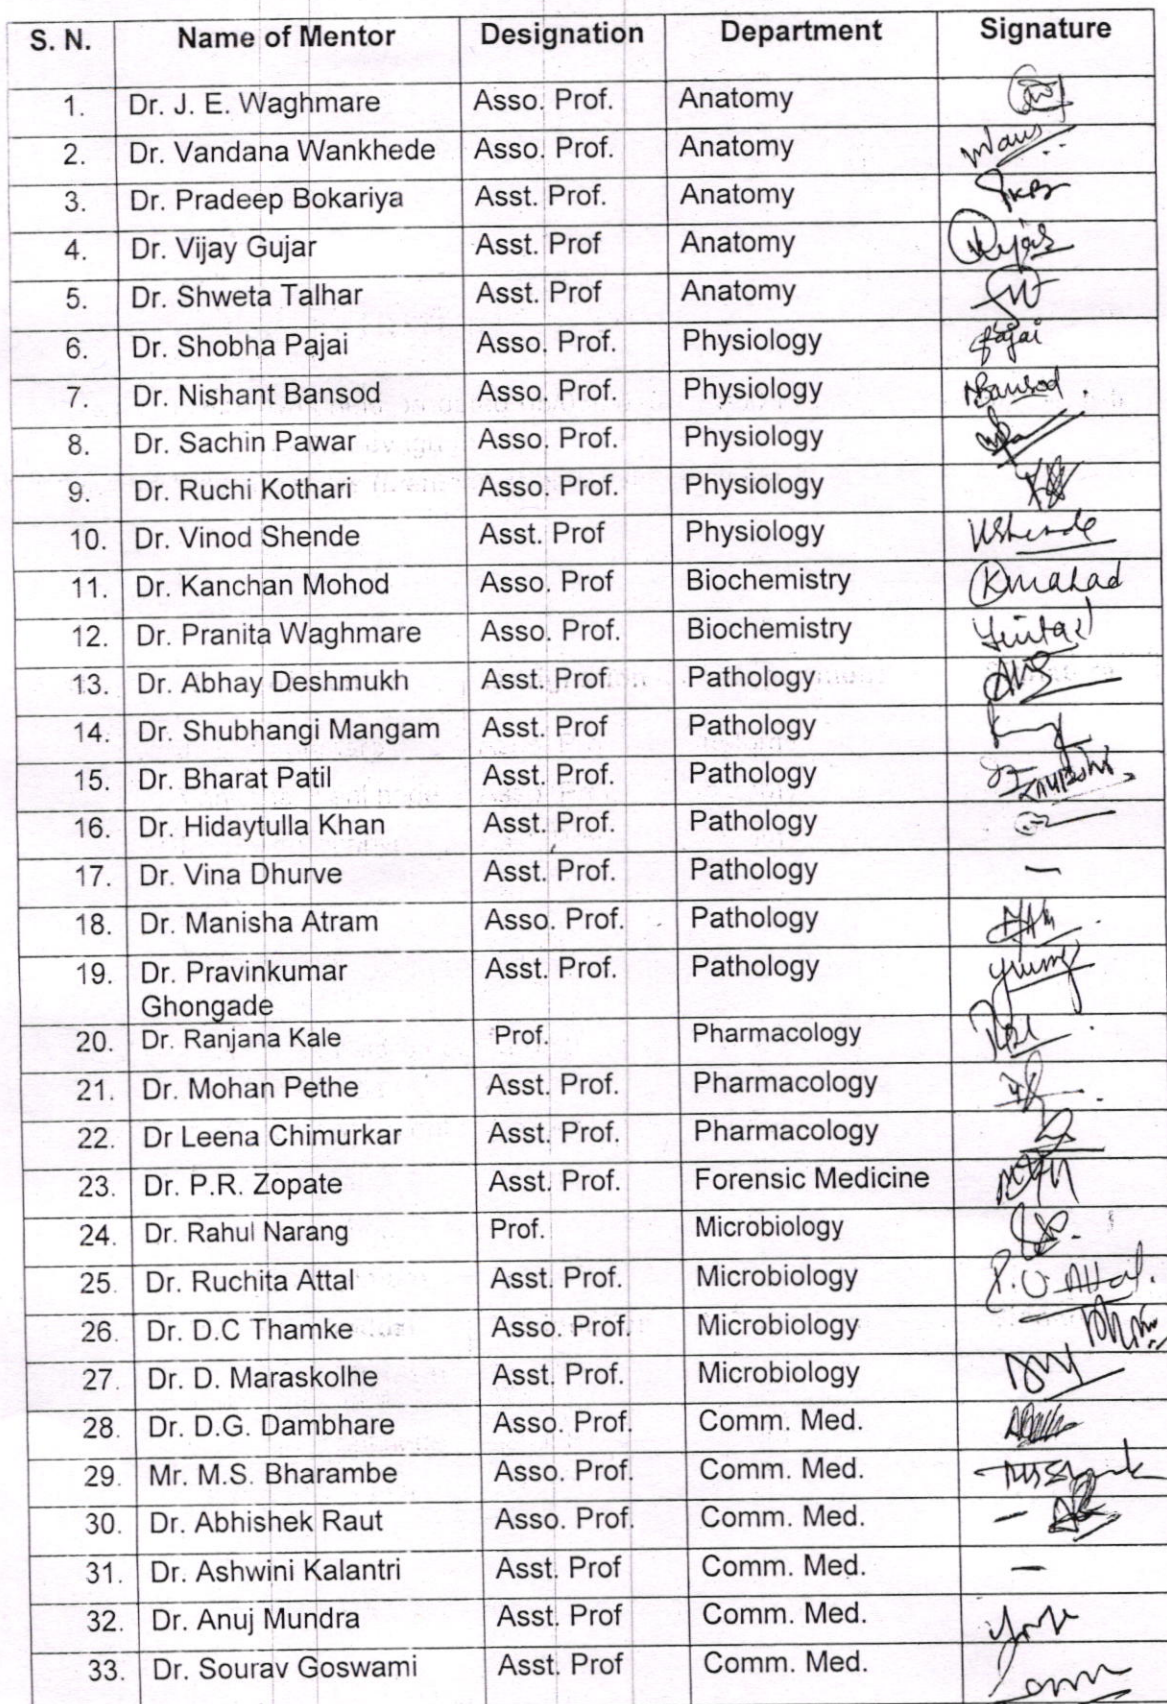 S. N. Name of Mentor Designation Department Signature
1. Dr. J. E. Waghmare Asso. Prof. Anatomy
2. Dr. Vandana Wankhede Asso. Prof. Anatomy
3. Dr. Pradeep Bokariya Asst. Prof. Anatomy
4. Dr. Vijay Gujar Asst. Prof Anatomy
5. Dr. Shweta Talhar Asst. Prof Anatomy
6. Dr. Shobha Pajai Asso. Prof. Physiology Pajai
7. Dr. Nishant Bansod Asso. Prof. Physiology NBansod
8. Dr. Sachin Pawar Asso. Prof. Physiology
9. Dr. Ruchi Kothari Asso. Prof. Physiology
10. Dr. Vinod Shende Asst. Prof Physiology VShende
11. Dr. Kanchan Mohod Asso. Prof Biochemistry
12. Dr. Pranita Waghmare Asso. Prof. Biochemistry
13. Dr. Abhay Deshmukh Asst. Prof. Pathology
14. Dr. Shubhangi Mangam Asst. Prof Pathology
15. Dr. Bharat Patil Asst. Prof. Pathology
16. Dr. Hidaytulla Khan Asst. Prof. Pathology
17. Dr. Vina Dhurve Asst. Prof. Pathology —
18. Dr. Manisha Atram Asso. Prof. Pathology
19. Dr. Pravinkumar Asst. Prof. Pathology
Ghongade
20. Dr. Ranjana Kale Prof. Pharmacology
21. Dr. Mohan Pethe Asst. Prof. Pharmacology
22. Dr Leena Chimurkar Asst. Prof. Pharmacology
23. Dr. P.R. Zopate Asst. Prof. Forensic Medicine
24. Dr. Rahul Narang Prof. Microbiology
25. Dr. Ruchita Attal Asst. Prof. Microbiology Attal.
26. Dr. D.C Thamke Asso. Prof. Microbiology
27. Dr. D. Maraskolhe Asst. Prof. Microbiology
28. Dr. D.G. Dambhare Asso. Prof. Comm. Med.
29. Mr. M.S. Bharambe Asso. Prof. Comm. Med.
30. Dr. Abhishek Raut Asso. Prof. Comm. Med. —
31. Dr. Ashwini Kalantri Asst. Prof Comm. Med. —
32. Dr. Anuj Mundra Asst. Prof Comm. Med.
33. Dr. Sourav Goswami Asst. Prof Comm. Med.